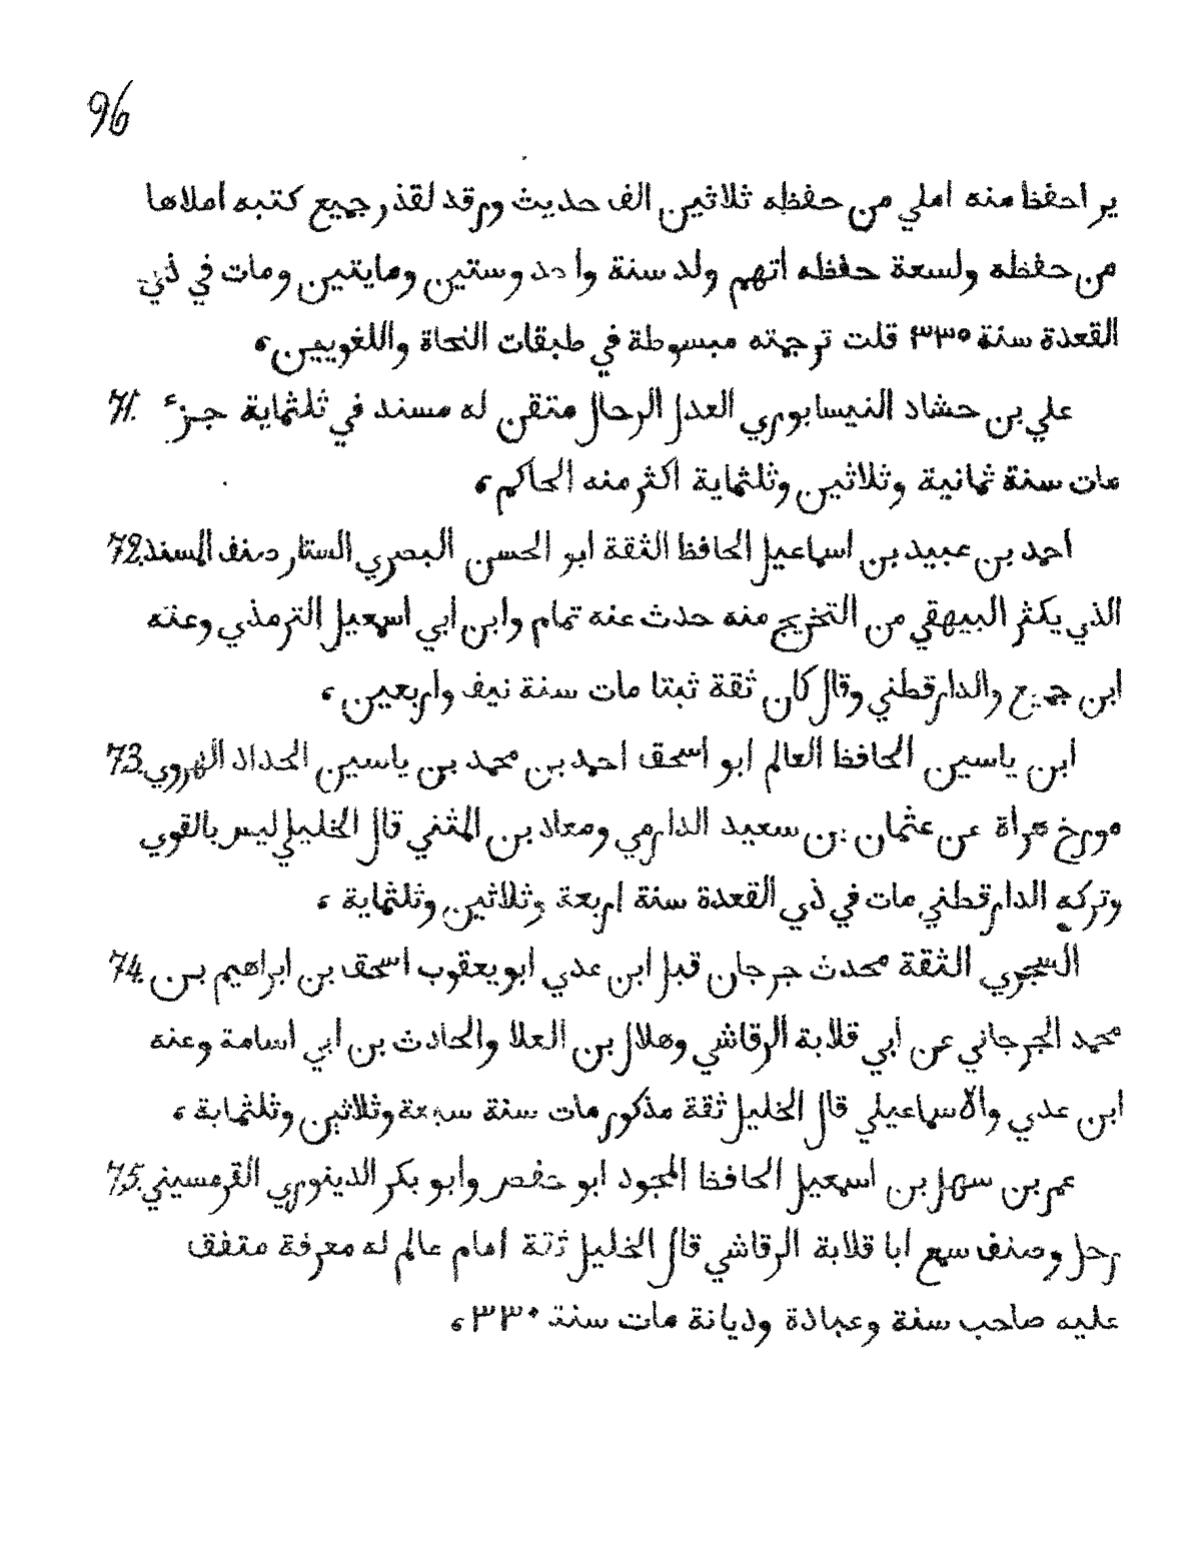 96
ير احفظ منه املي من حفظه ثلاثين الف حديث ورقد لقذر جميع كتبه املاها
من حفظه ولسعة حفظه اتهم ولد سنة واحد وستين ومايتين ومات في ذي
القعدة سنة ٣٣٠ قلت ترجمته مبسوطة في طبقات النحاة واللغويين،
علي بن حشاد النيسابوري العدل الرحال متقن له مسند في ثلثماية جزء 71.
مات سنة ثمانية وثلاثين وثلثماية اكثر منه الحاكم،
احمد بن عبيد بن اسماعيل الحافظ الثقة ابو الحسن البصري الستار صنف المسند 72.
الذي يكثر البيهقي من التخريج منه حدث عنه تمام وابن ابي اسمعيل الترمذي وعنه
ابن جميع والدارقطني وقال كان ثقة ثبتا مات سنة نيف واربعين،
ابن ياسين الحافظ العالم ابو اسحق احمد بن محمد بن ياسين الحداد الهروي 73.
مورخ هراة عن عثمان بن سعيد الدارمي ومعاد بن المثني قال الخليلي ليس بالقوي
وتركه الدارقطني مات في ذي القعدة سنة اربعة وثلاثين وثلثماية،
السجوي الثقة محدث جرجان قبل ابن عدي ابو يعقوب اسحق بن ابراهيم بن 74.
محمد الجرجاني عن أبي قلابة الرقاشي وهلال بن العلا والحادث بن ابي اسامة وعنه
ابن عدي والاسماعيلي قال الخليل ثقة مذكور مات سنة سبعة وثلاثين وثلثماية،
عمر بن سهل بن اسمعيل الحافظ المجود ابو حفص وابو بكر الدينوري القرمسيني 75.
رحل وصنف سمع ابا قلابة الرقاشي قال الخليل ثقة امام عالم له معرفة متفق
عليه صاحب سنة وعبادة وديانة مات سنة ٣٣٠،